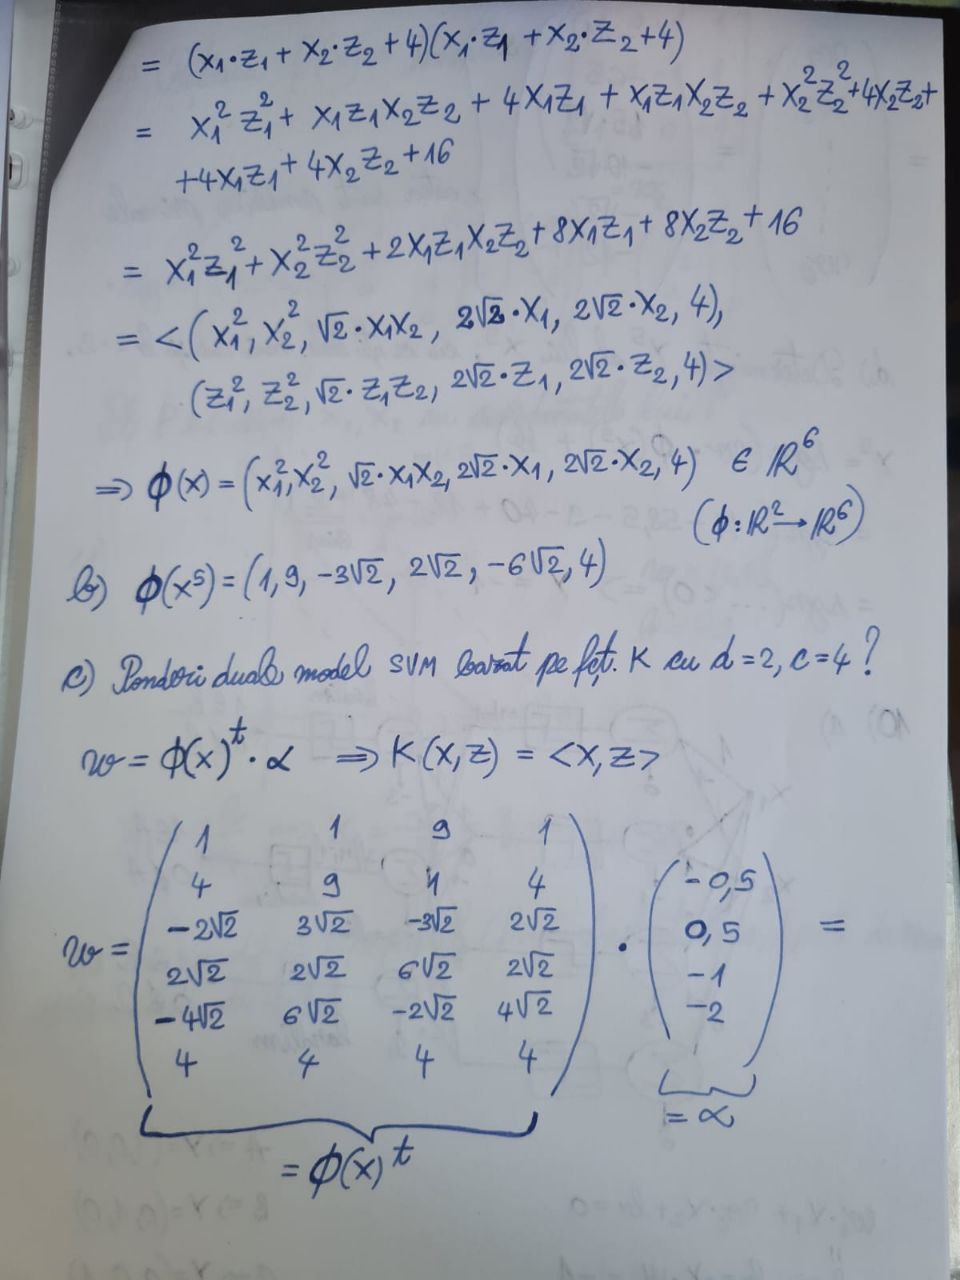 = (x₁·z₁ + x₂·z₂ + 4)(x₁·z₁ + x₂·z₂ + 4)
= x₁² z₁² + x₁z₁x₂z₂ + 4x₁z₁ + x₁z₁x₂z₂ + x₂²z₂² + 4x₂z₂ +
+4x₁z₁ + 4x₂z₂ + 16
= x₁²z₁² + x₂²z₂² + 2x₁z₁x₂z₂ + 8x₁z₁ + 8x₂z₂ + 16
= <(x₁², x₂², √2·x₁x₂, 2√2·x₁, 2√2·x₂, 4),
(z₁², z₂², √2·z₁z₂, 2√2·z₁, 2√2·z₂, 4)>
⇒ ϕ(x) = (x₁², x₂², √2·x₁x₂, 2√2·x₁, 2√2·x₂, 4) ∈ ℝ⁶
(ϕ: ℝ² → ℝ⁶)
b) ϕ(x⁵) = (1, 9, -3√2, 2√2, -6√2, 4)
c) Ponderi duale model SVM bazat pe fçt. K cu d = 2, c = 4?
w = ϕ(x)ᵗ · α ⇒ K(x,z) = <x,z>
1 1 9 1
4 9 1 4 -0,5
-2√2 3√2 -3√2 2√2 0,5
w = · =
2√2 2√2 6√2 2√2 -1
-4√2 6√2 -2√2 4√2 -2
4 4 4 4
= α
= ϕ(x)ᵗ